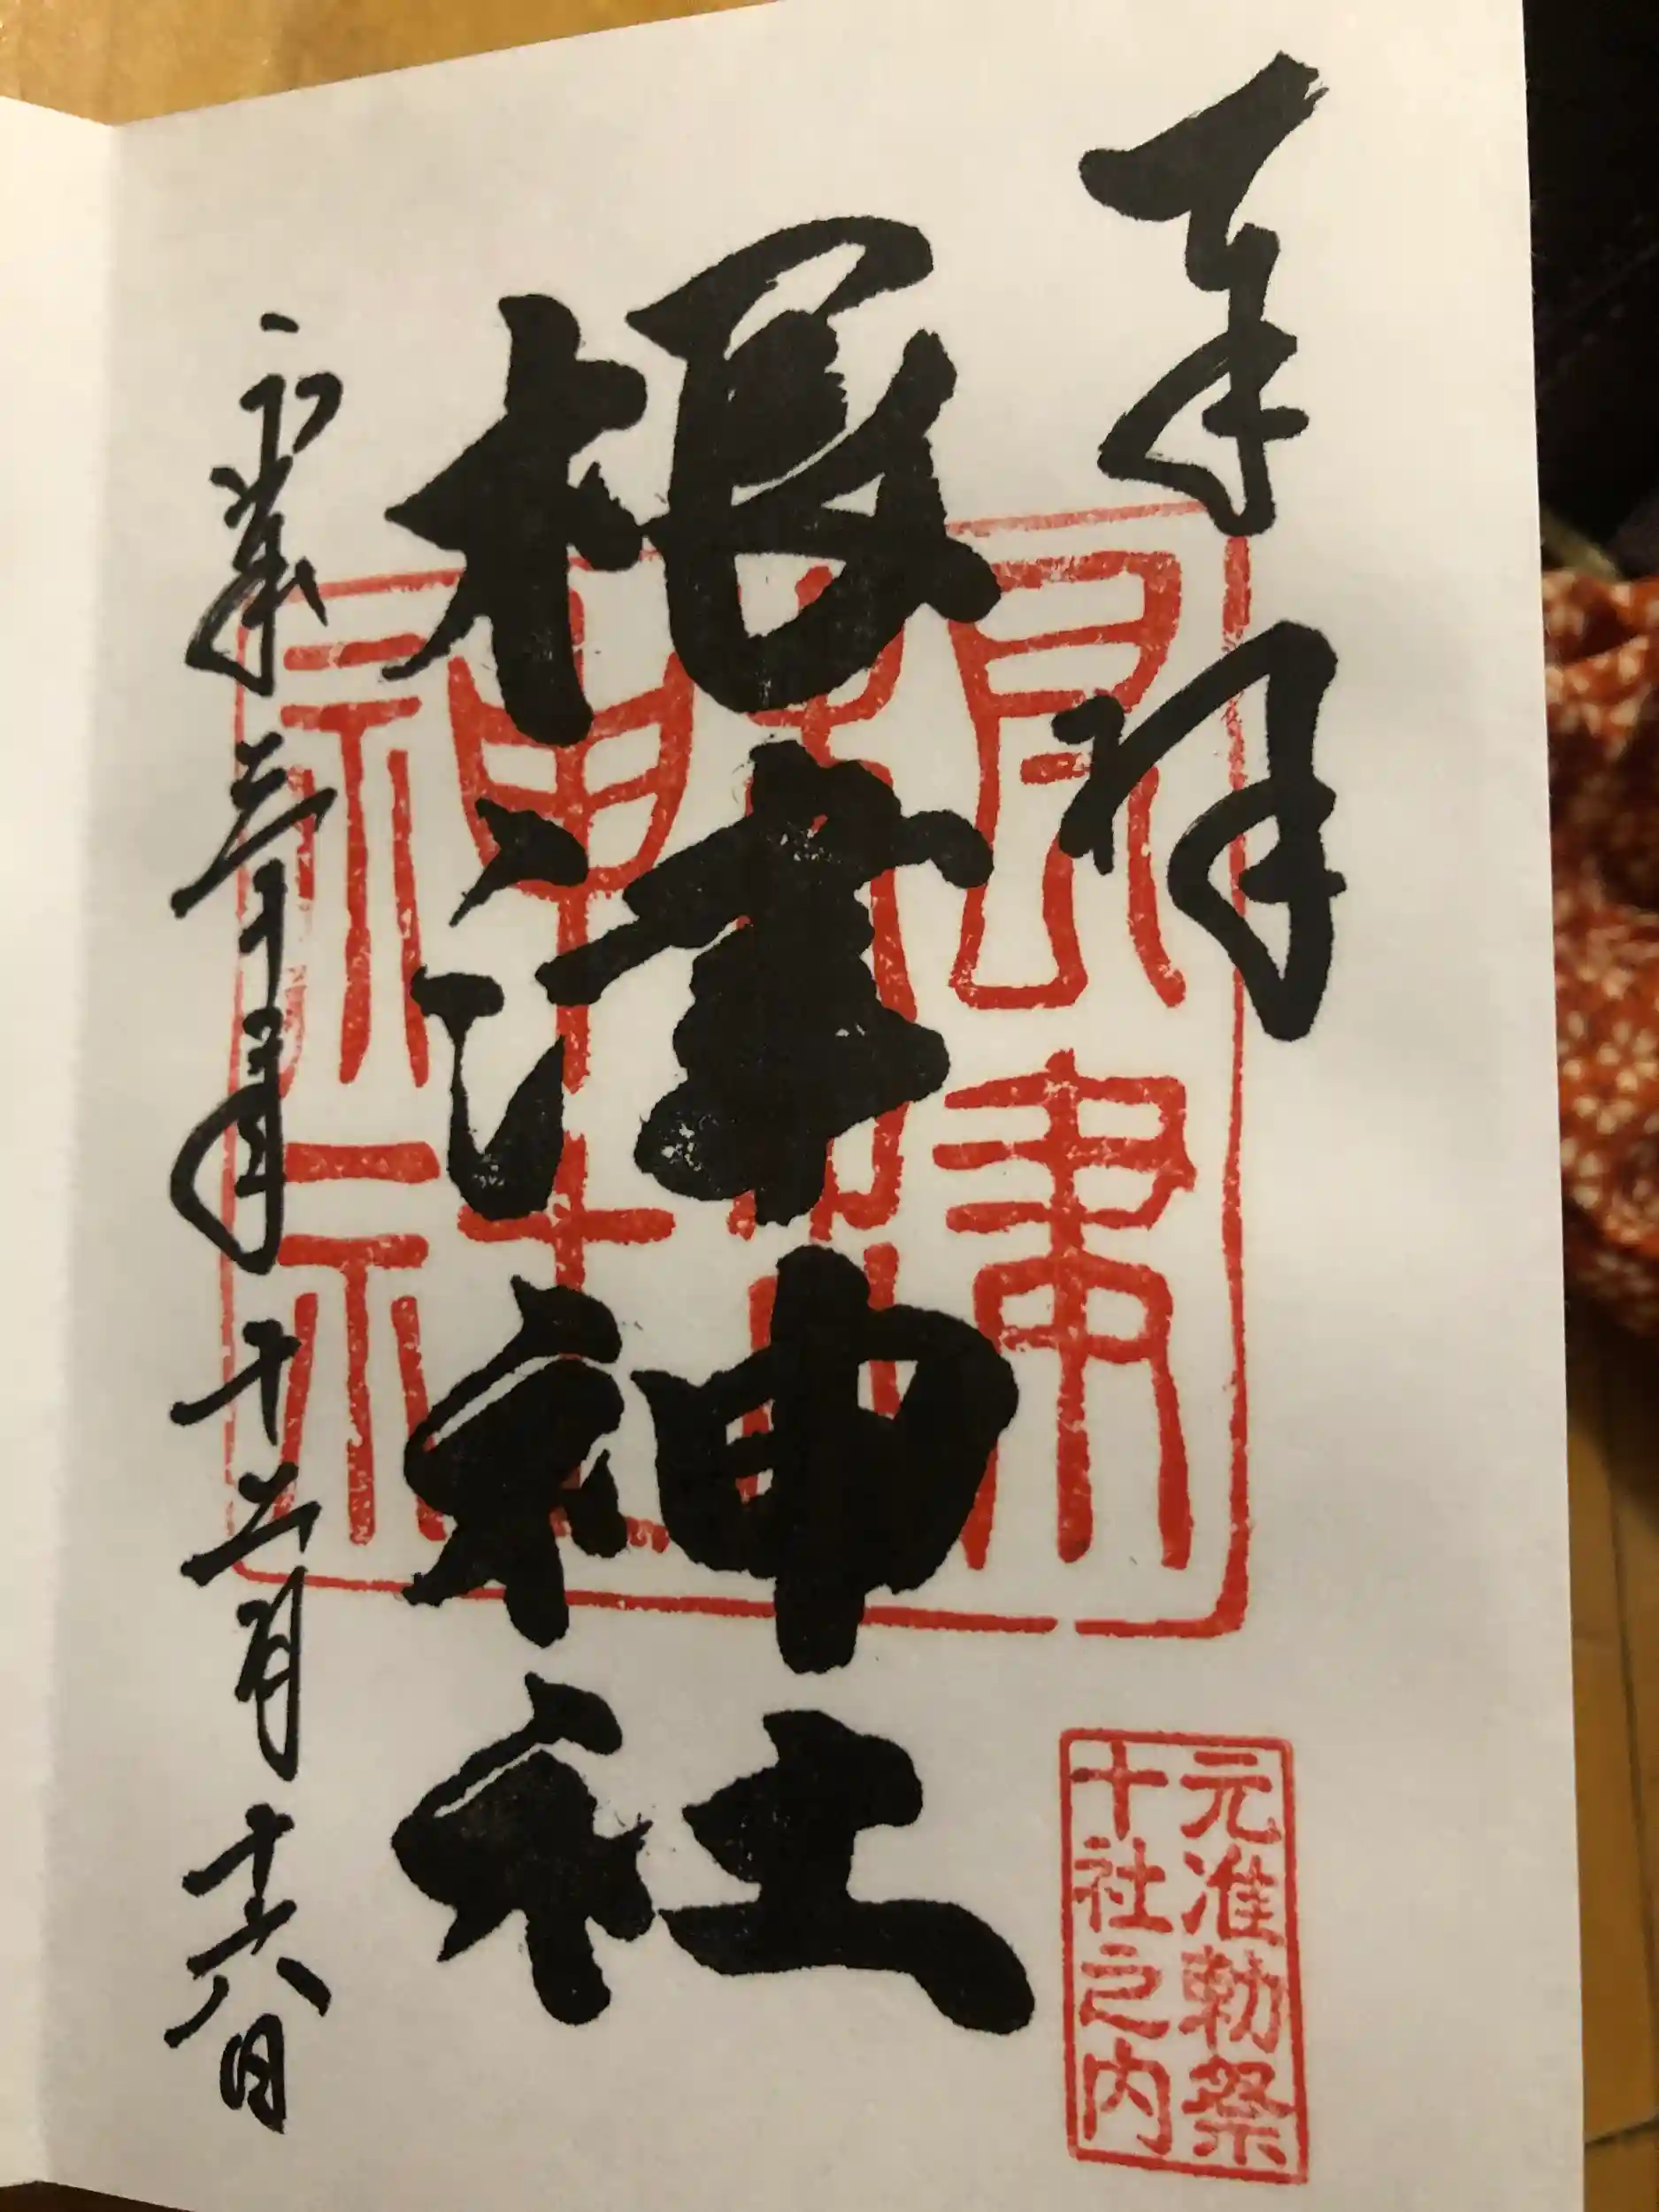 奉拝
元准勅祭
十社之内
根津神社
根津
神社
平成三十年十二月十六日